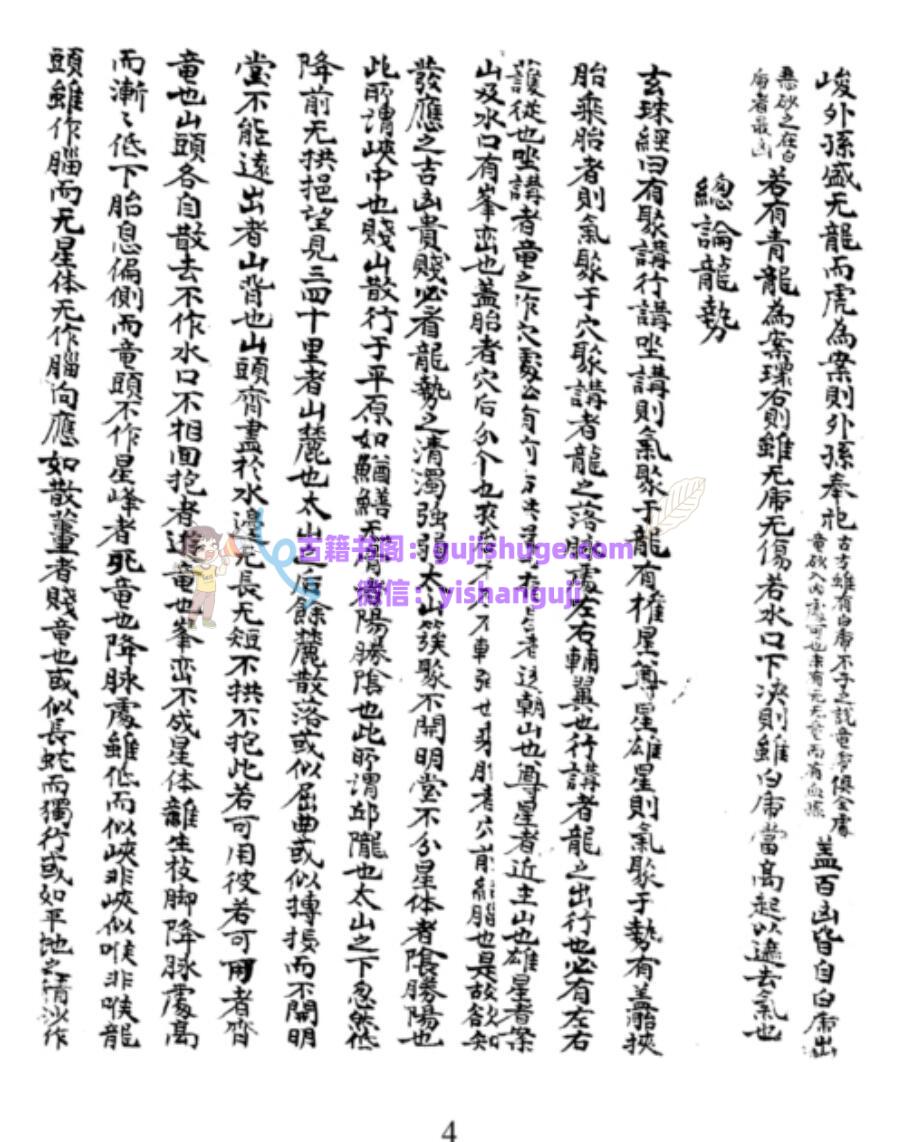 峻外孫盛无龍而虎為案則外孫奉祀古者雖有白席不子之說竜席俱全處竜砂入內處可也未有元无竜而有血撼盖百凶皆自白席出
悪砂之在白席者最凶若有青龍為案環右則雖无席无傷若水口下决則雖白席當高起以遮去氣也
緫論龍勢
玄珠經曰有聚講行講坐講則氣聚于龍有權星尊星雄星則氣聚于勢有盖胎挾
胎乘胎者則氣聚于穴聚講者龍之落脉處左右輔翼也行講者龍之出行也必有左右
護從也坐講者竜之作穴處必有前後者這朝山也尊星者近主山也雄星者案
山及水口有峯峦也盖胎者穴后分个也者穴前組脳也是故欲知
發應之吉凶貴賤必看龍勢之清濁强弱太山簇聚不開明堂不分星体者陰勝陽也
此所謂峽中也賤山散行于平原如鰌鱔无陽勝陰也此所謂邱隴也太山之下忽然低
降前无拱抱望見三四十里者山麓也太山之后餘麓散落或似屈曲或似摶損而不開明
堂不能遠出者山背也山頭齊盡於水邊无長无短不拱不抱此若可用彼若可用者齊
竜也山頭各自散去不作水口不相回抱者遊竜也峯峦不成星体離生枝脚降脉處高
而漸〻低下胎息偏側而竜頭不作星峰者死竜也降脉處雖低而似峽非峽似喉非喉龍
頭雖作腦而无星体无作腦向應如散薑者賤竜也或似長蛇而獨行或如平地之清沙作
古籍书阁：gujishuge.com
微信：yishanguji
4